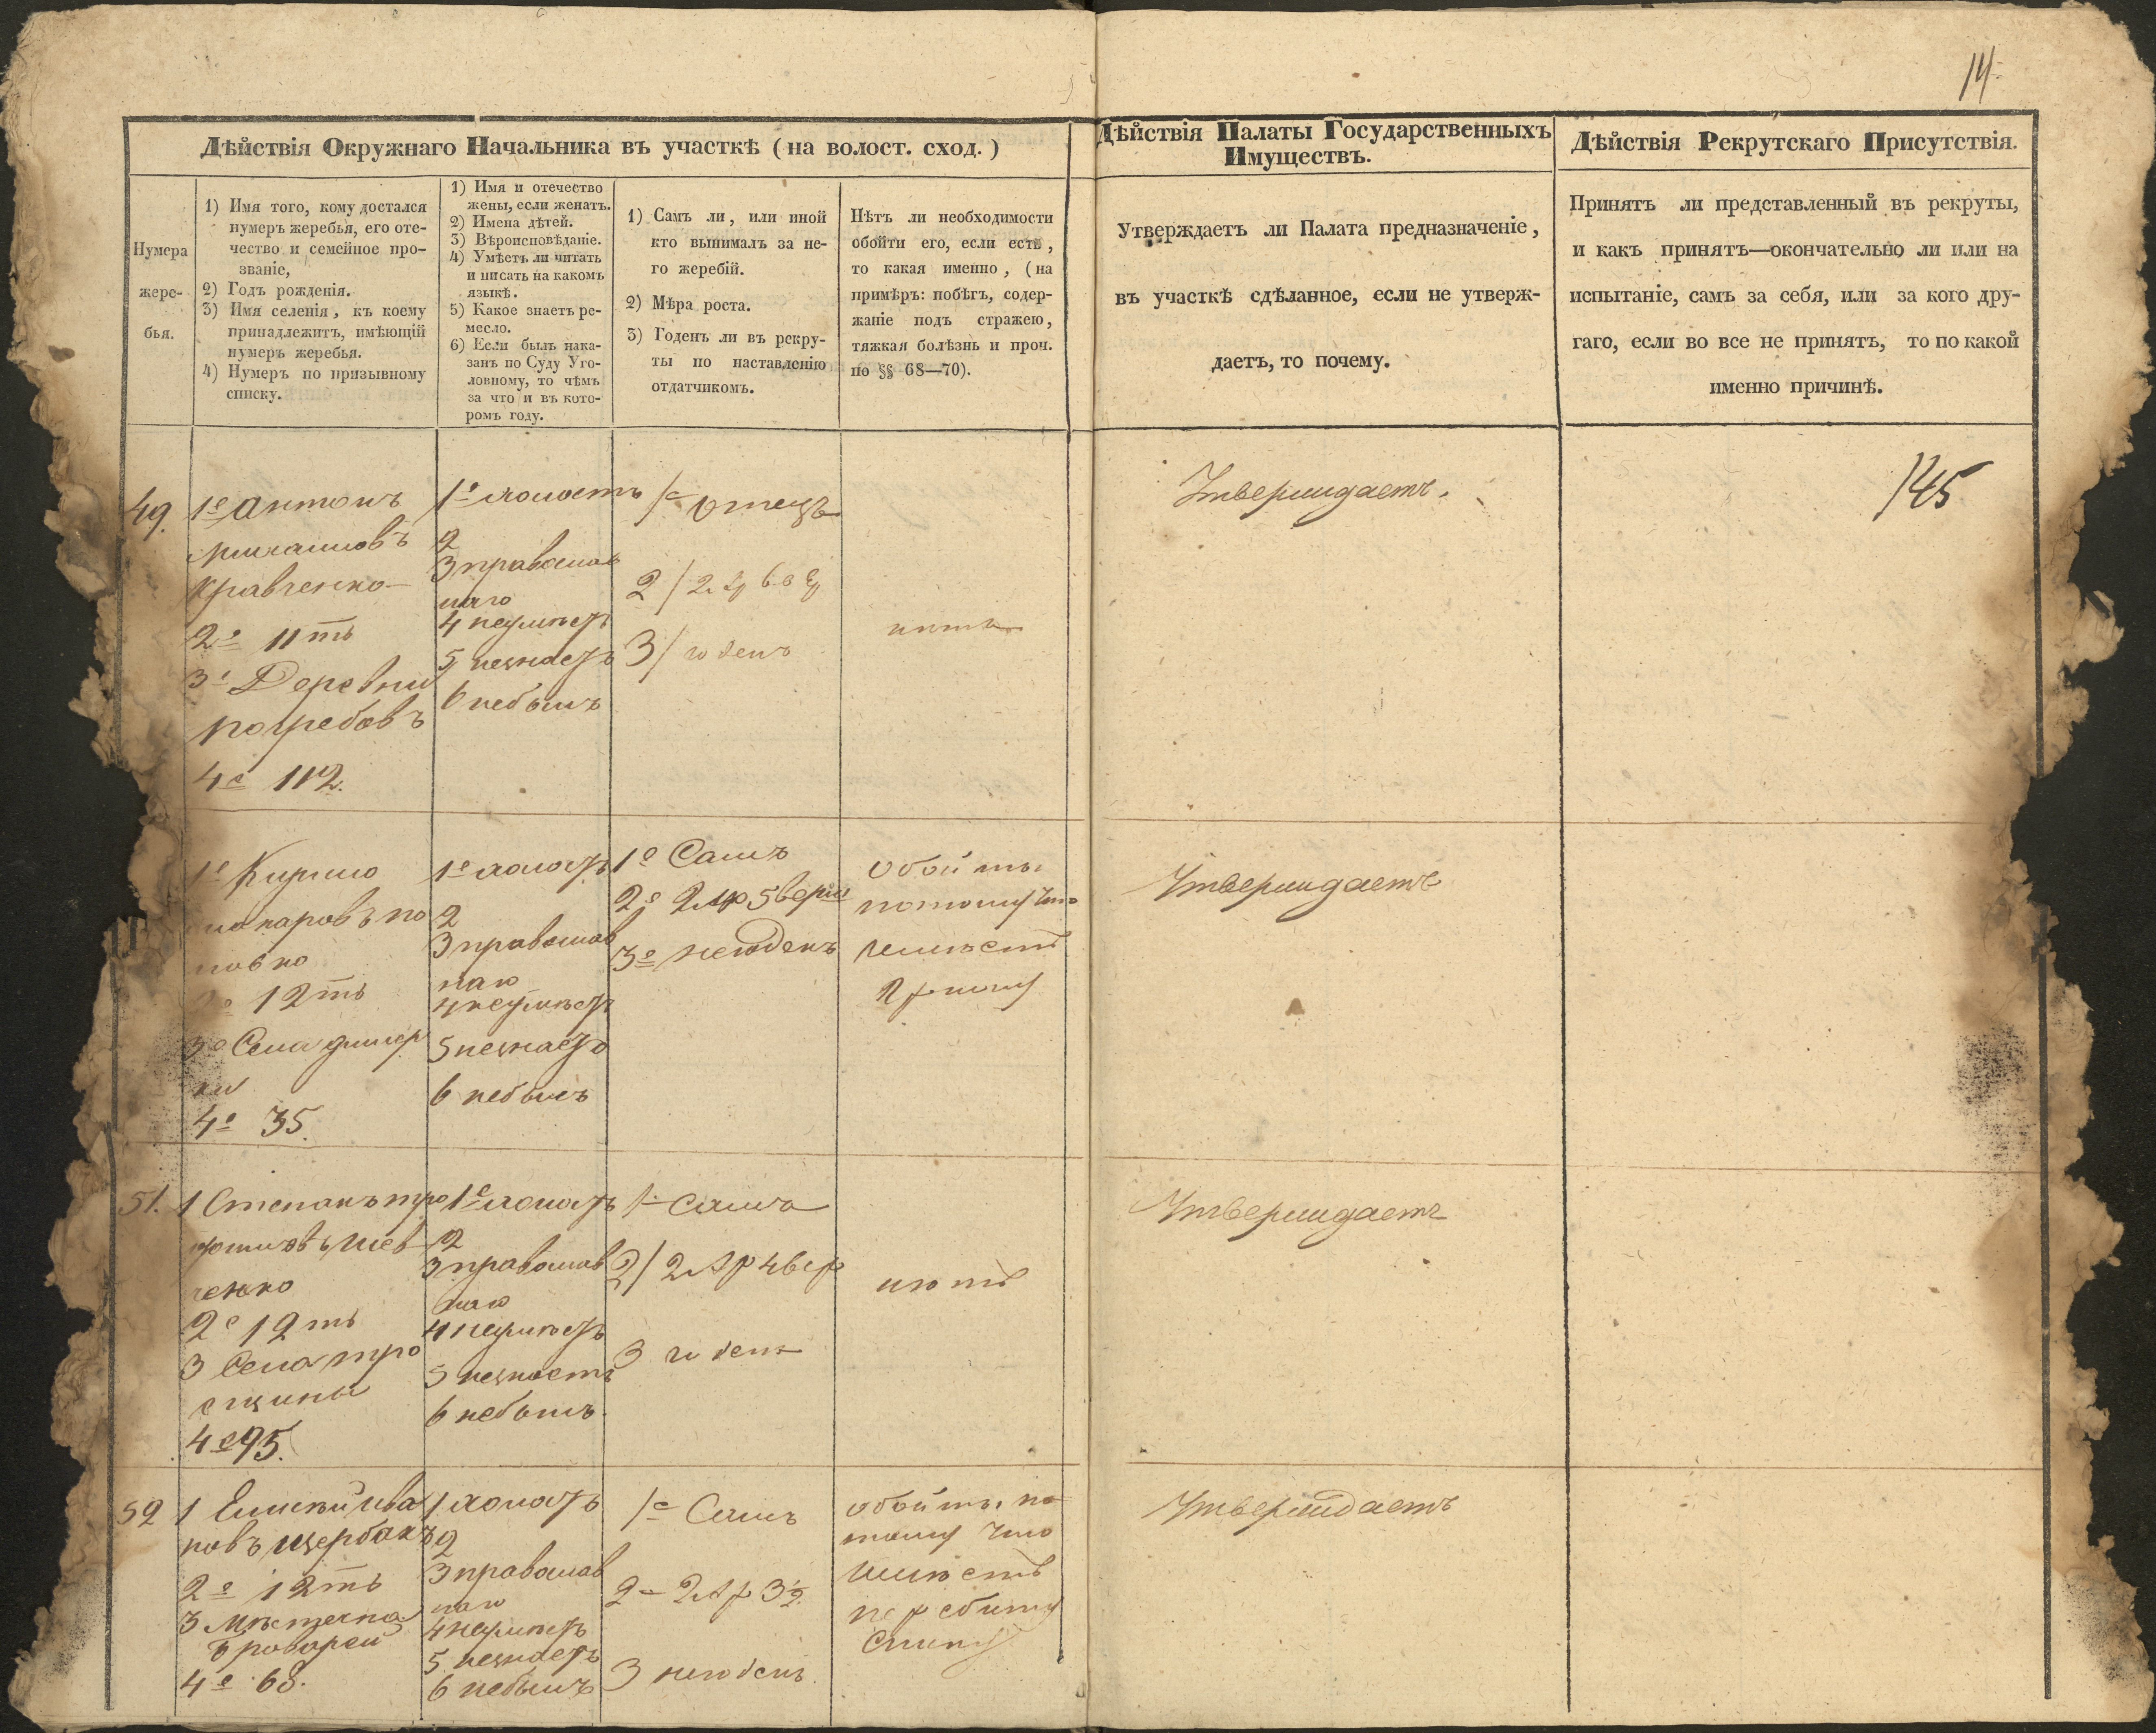 14.
Дѣйствія Окружнаго Начальника въ участкѣ (на волост. сход.)
Дѣйствія Палаты Государственныхъ
Имуществъ.
Дѣйствія Рекрутскаго Присутствія.
Нумера
жере-
бья.
1) Имя того, кому достался
нумеръ жеребья, его оте-
чество и семейное про-
званіе,
2) Годъ рожденія.
3) Имя селенія, къ коему
принадлежитъ, имѣющій
нумеръ жеребья.
4) Нумеръ по призывному
списку.
1) Имя и отечество
жены, если женатъ.
2) Имена дѣтей.
3) Вѣроисповѣданіе.
4) Умѣетъ ли читать
и писать на какомъ
языкѣ.
5) Какое знаетъ ре-
месло.
6) Если былъ нака-
занъ по Суду Уго-
ловному, то чѣмъ
за что и въ кото-
ромъ году.
1) Самъ ли, или иной
кто вынималъ за не-
го жеребій.
2) Мѣра роста.
3) Годенъ ли въ рекру-
ты по наставленію
отдатчикомъ.
Нѣтъ ли необходимости
обойти его, если есть,
то какая именно, (на
примѣръ: побѣгъ, содер-
жаніе подъ стражею,
тяжкая болѣзнь и проч.
по §§ 68—70).
Утверждаетъ ли Палата предназначеніе,
въ участкѣ сдѣланное, если не утверж-
даетъ, то почему.
Принятъ ли представленный въ рекруты,
и какъ принятъ—окончательно ли или на
испытаніе, самъ за себя, или за кого дру-
гаго, если во все не принятъ, то по какой
именно причинѣ.
49.
1е Антонъ
Михайловъ
Кравченко
2е 11тъ
3е Деревни
погребовъ
4е 112.
1е холостъ
2
3 православ
наго
4 неумѣетъ
5 незнаетъ
6 небылъ
1е Отецъ
3/ годенъ
нѣтъ
Утверждаетъ.
145
1е Кирило
макаровъ по
повко
12тъ
3е Села димер
ки
4е 35.
1е холостъ
2
3 православ
наго
4 неумѣетъ
5 незнаетъ
6 небылъ
1е Самъ
2е 2 ар 5 верш
3е негоденъ
Обойтъ
потому что
имѣетъ
Утверждаетъ
51.
1 Степанъ тро
фимовъ Шев
ченко
2е 12тъ
3 Села тро
ещины
4е 95.
1е холостъ
2
3 православ
наго
4 неумѣетъ
5 незнаетъ
6 небылъ.
1 Самъ
2/ 2 ар 4 вер
3 годенъ
нѣтъ
Утверждаетъ
52
1 Елисѣй ива
новъ щербакъ
2е 12тъ
3 Мѣстечка
Броваров
4е 68.
1 холостъ
2
3 православ
наго
4 неумѣетъ
5 незнаетъ
6 небылъ
1е Самъ
2е 2 ар 3½
3 негоденъ
обойтъ по
тому что
имѣетъ
перебиту
спину
Утверждаетъ